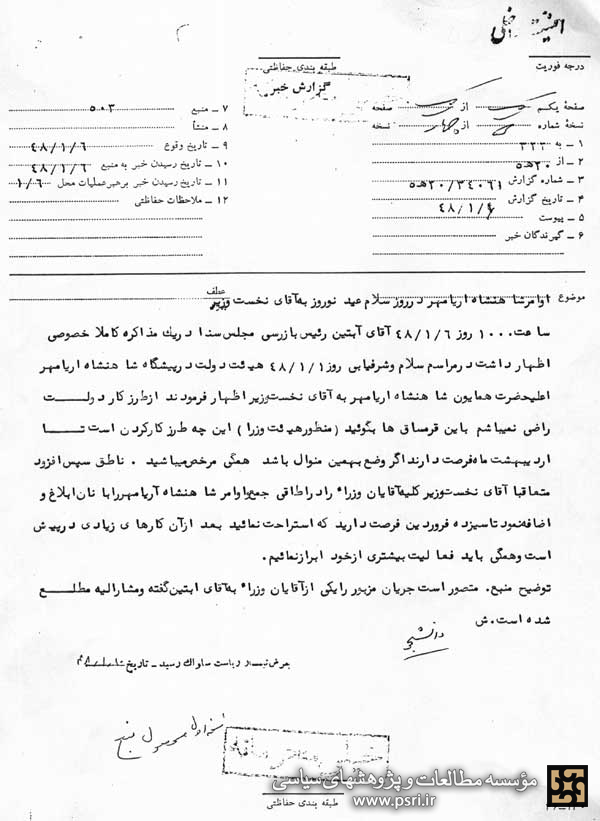 درجه فوریت
طبقه بندی حفاظتی
گزارش خبر
صفحهٔ یکم از صفحه
نسخهٔ شماره از چهار نسخه
۱ ـ به ۳۲۳
۲ ـ از ۲۰ه‍
۳ ـ شماره گزارش ۲۰/۳۴۰۶۱ه‍
۴ ـ تاریخ گزارش ۴۸/۱/۶
۵ ـ پیوست
۶ ـ گیرندگان خبر
۷ ـ منبع ۵۰۳
۸ ـ منشأ
۹ ـ تاریخ وقوع ۴۸/۱/۶
۱۰ ـ تاریخ رسیدن خبر به منبع ۴۸/۱/۶
۱۱ ـ تاریخ رسیدن خبر برهبرعملیات محل ۱/۶
۱۲ ـ ملاحظات حفاظتی
موضوع اوامرشاهنشاه اریامهر درروز سلام عید نوروز به‌آقای نخست وزیر
عطف
ساعت ۱۰۰۰ روز ۴۸/۱/۶ آقای آبتین رئیس بازرسی مجلس سنا دریك مذاکره کاملا خصوصی
اظهارداشت درمراسم سلام وشرفیابی روز ۴۸/۱/۱ هیئت دولت درپیشگاه شاهنشاه اریامهر
اعلیحضرت همایون شاهنشاه اریامهر به آقای نخست‌وزیر اظهار فرمودند ازطرز کار دولت
راضی نمیباشم باین قرمساق ها بگوئید (منظورهیئت وزرا) این چه طرز کارکردن است تا
اردیبهشت ماه فرصت دارند اگر وضع بهمین منوال باشد همگی مرخص میباشید . ناطق سپس افزود
متعاقبا آقای نخست‌وزیر کلیه‌آقایان وزراء رادراطاقی جمع واوامر شاهنشاه آریامهررابانان ابلاغ و
اضافه‌نمود تاسیزده فروردین فرصت دارید که استراحت نمائید بعد ازآن کارهای زیادی درپیش
است وهمگی باید فعالیت بیشتری ازخود ابرازنمائیم .
توضیح منبع . متصور است جریان مزبور رایکی ازآقایان وزراء به‌آقای ابتین‌گفته ومشارالیه مطلع
شده است . ش
دانشجو
بعرض تیمسار ریاست ساواك رسید ـ تاریخ
مؤسسه مطالعات و پژوهشهای سیاسی
www.psri.ir
طبقه بندی حفاظتی